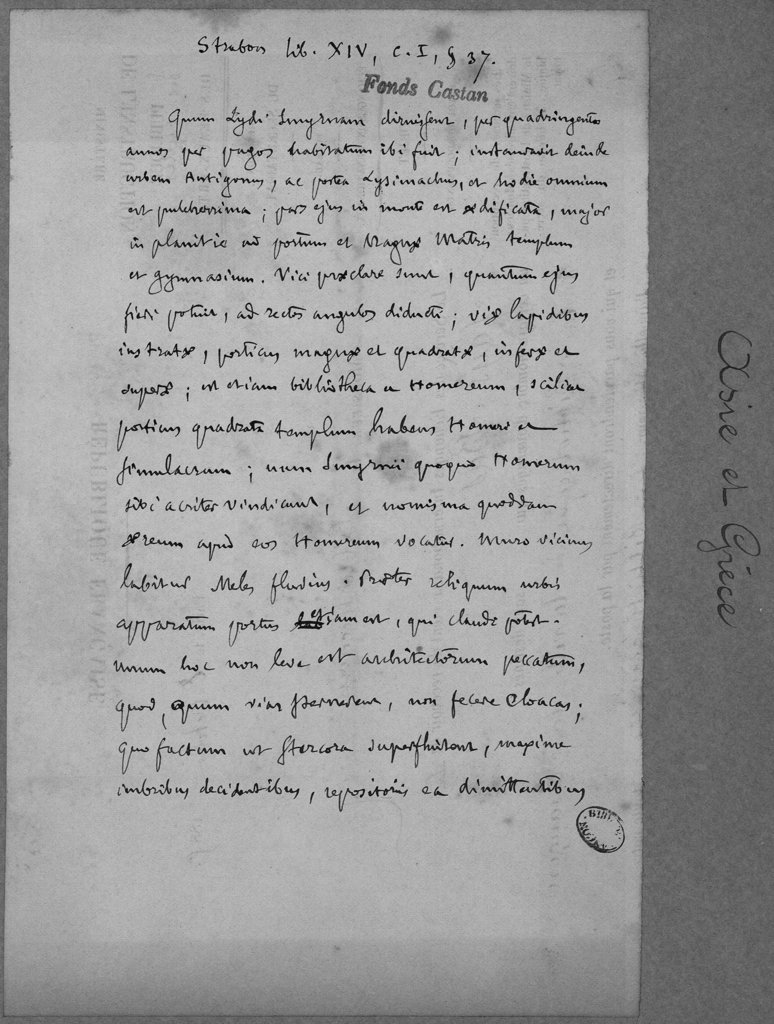 Strabon lib. XIV, c. I, § 37.
Fonds Castan
Quum Lydi Smyrnam diruissent, per quadringentos
annos per pagos habitatum ibi fuit ; instauravit deinde
urbem Antigonus, ac postea Lysimachus, et hodie omnium
est pulcherrima ; pars ejus in monte est ædificata, major
in planitie ad portum et Magnæ Matris templum
et gymnasium. Vici præclare sunt, quantum ejus
fieri potuit, ad rectos angulos diducti ; viæ lapidibus
instratæ, porticus magnæ et quadratæ, inferæ et
superæ ; est etiam bibliotheca et Homereum, scilicet
porticus quadrata templum habens Homeri et
simulacrum ; nam Smyrnæi quoque Homerum
sibi acriter vindicant, et nomisma quoddam
æreum apud eos Homereum vocatur. Muro vicinus
labitur Meles fluvius. Præter reliquum urbis
apparatum portus etiam est, qui claudi potest.
Unum hoc non leve est architectorum peccatum,
quod, quum vias sternerent, non fecere cloacas ;
quo factum ut stercora superfluitent, maxime
imbribus decidentibus, repositoriis ea dimittentibus
Asie et Grèce